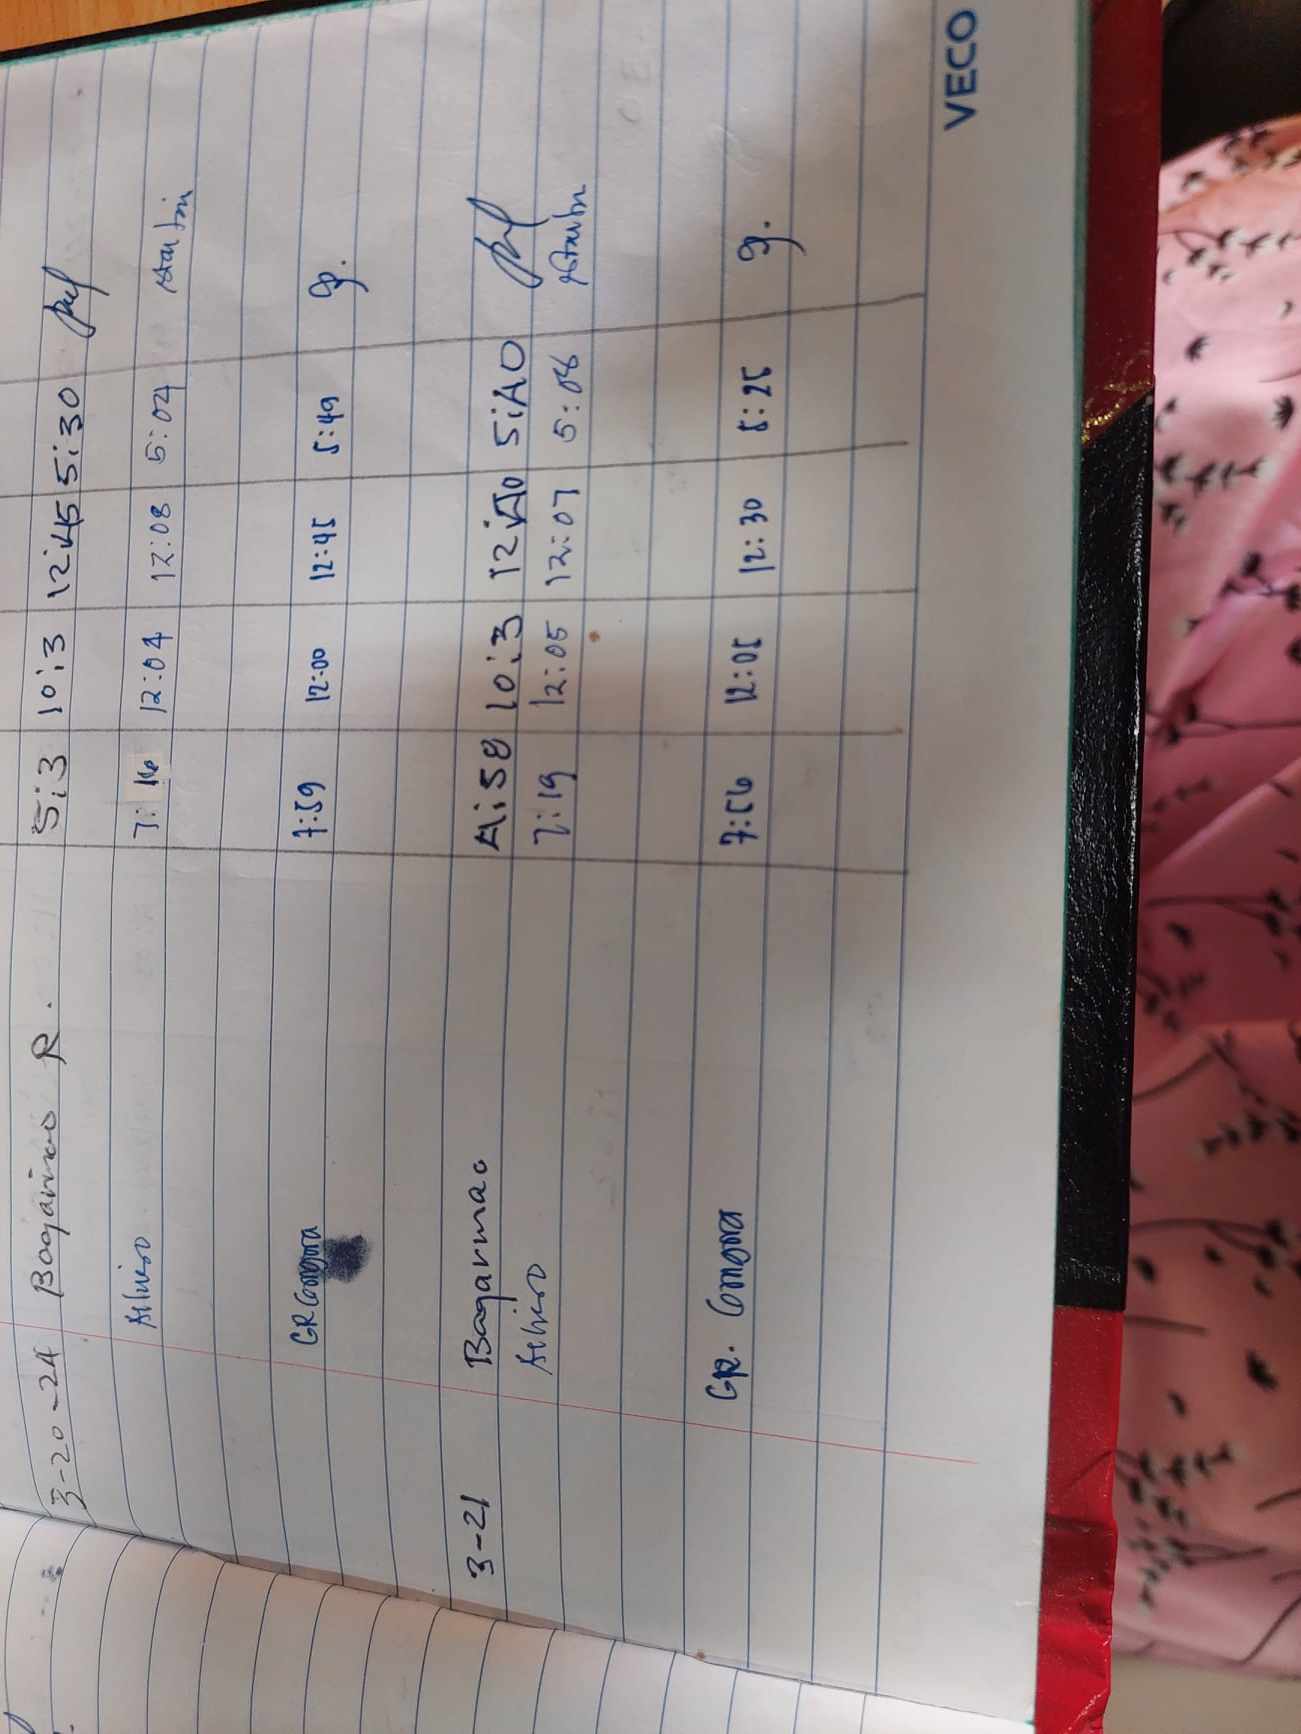 3-20-24 Bagarinao R. 5:3 10:3 12:45 5:30
Silvero 7:16 12:04 12:08 5:04
GR Gongora 7:59 12:00 12:45 5:49
3-21 Bagarinao 4:58 10:3 12:40 5:40
Silvero 7:19 12:05 12:07 5:08
GR. Gongora 7:56 12:05 12:30 5:25
VECO